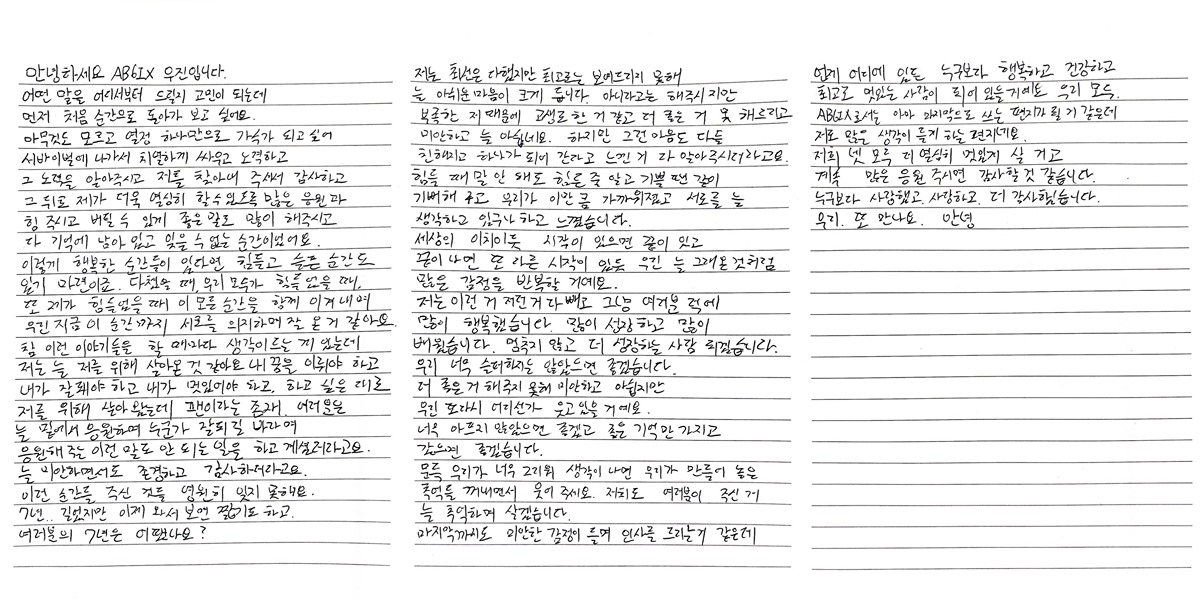 안녕하세요 AB6IX 우진입니다.
어떤 말을 어디서부터 드릴지 고민이 되는데
먼저 처음 순간으로 돌아가 보고 싶어요.
아무것도 모르고 열정 하나만으로 가수가 되고 싶어
서바이벌에 나가서 치열하게 싸우고 노력하고
그 노력을 알아주시고 저를 찾아내 주셔서 감사하고
그 뒤로 제가 더욱 열심히 할 수 있도록 많은 응원과
힘 주시고 버틸 수 있게 좋은 말도 많이 해주시고
다 기억에 남아 있고 잊을 수 없는 순간이었어요.
이렇게 행복한 순간들이 있다면 힘들고 슬픈 순간도
있기 마련이죠. 다쳤을 때, 우리 모두가 힘들었을 때,
또 제가 힘들었을 때 이 모든 순간을 함께 이겨내며
우린 지금 이 순간까지 서로를 의지하며 잘 온 거 같아요.
참 이런 이야기들을 할 때마다 생각이 드는 게 있는데
저는 늘 저를 위해 살아온 것 같아요 내 꿈을 이뤄야 하고
내가 잘돼야 하고 내가 멋있어야 하고, 하고 싶은 대로
저를 위해 살아 왔는데 팬이라는 존재, 여러분은
늘 밑에서 응원하며 누군가 잘되길 바라며
응원해 주는 이런 말도 안 되는 일을 하고 계셨더라고요.
늘 미안하면서도 존경하고 감사하더라고요.
이런 순간들 주신 것들 영원히 잊지 못해요.
7년.. 길었지만 이제 와서 보면 짧기도 하고.
여러분의 7년은 어땠나요?
저는 최선은 다했지만 최고로는 보여드리지 못해
늘 아쉬운 마음이 크게 듭니다. 아니라고는 해주시지만
부족한 저 때문에 고생도 한 거 같고 더 좋은 거 못 해드리고
미안하고 늘 아쉽네요. 하지만 그런 마음도 다들
친해지고 하나가 되어 간다고 느낀 거 다 알아주시더라고요.
힘들 때 말 안 해도 힘든 줄 알고 기쁠 땐 같이
기뻐해 주고 우리가 이만큼 가까워졌고 서로를 늘
생각하고 있구나 하고 느꼈습니다.
세상의 이치이듯 시작이 있으면 끝이 있고
끝이 나면 또 다른 시작이 있듯 우린 늘 그래온 것처럼
많은 감정을 반복할 거예요.
저는 이런 거 저런 거 다 빼고 그냥 여러분 덕에
많이 행복했습니다. 많이 성장하고 많이
배웠습니다. 멈추지 않고 더 성장하는 사람 되겠습니다.
우리 너무 슬퍼하지는 않았으면 좋겠습니다.
더 좋은 거 해주지 못해 미안하고 아쉽지만
우린 또다시 어디선가 웃고 있을 거예요.
너무 아프지 않았으면 좋겠고 좋은 기억만 가지고
갔으면 좋겠습니다.
문득 우리가 너무 그리워 생각이 나면 우리가 만들어 놓은
추억을 꺼내면서 웃어 주세요. 저희도 여러분이 주신 거
늘 추억하며 살겠습니다.
마지막까지도 미안한 감정이 들며 인사를 드리는 거 같은데
언제 어디에 있든 누구보다 행복하고 건강하고
최고로 멋있는 사람이 되어 있을 거예요 우리 모두.
AB6IX로서는 아마 마지막으로 쓰는 편지가 될 거 같은데
저도 많은 생각이 들게 하는 편지네요.
저희 넷 모두 더 열심히 멋있게 살 거고
계속 많은 응원 주시면 감사할 것 같습니다.
누구보다 사랑했고, 사랑하고, 더 감사했습니다.
우리. 또 만나요. 안녕